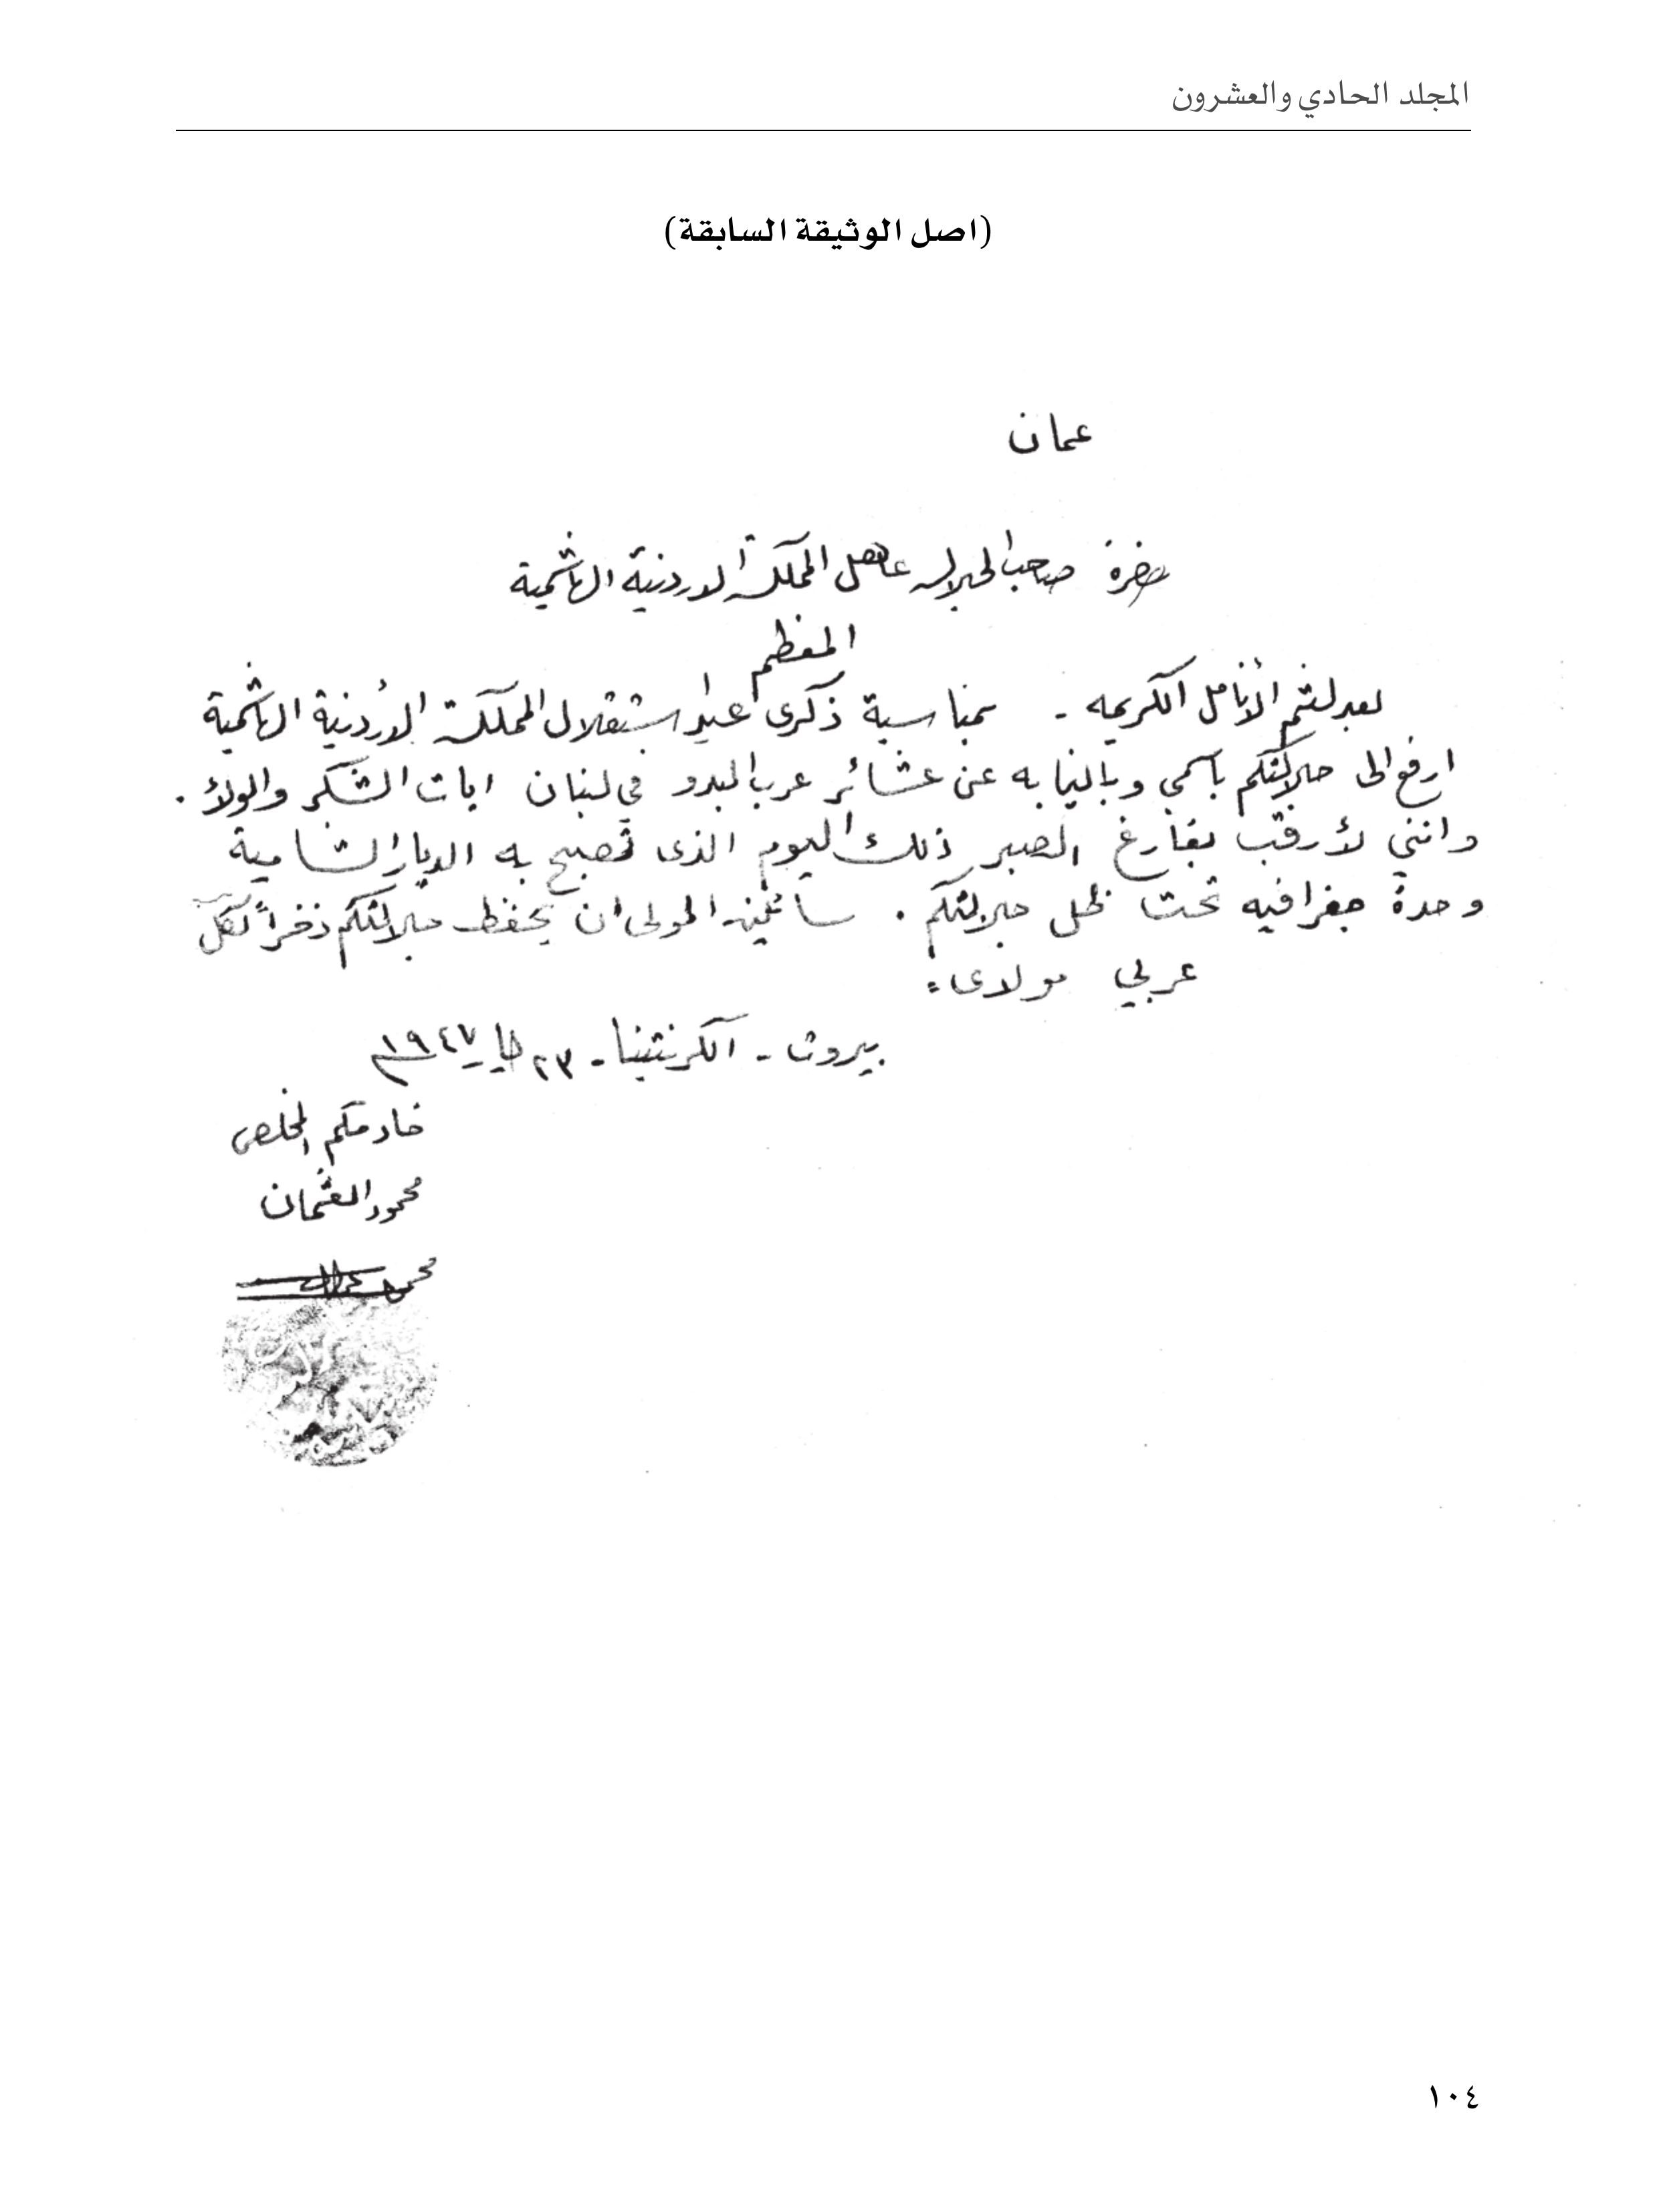 المجلد الحادي والعشرون
(اصل الوثيقة السابقة)
عمان
حضرة صاحب الجلاله عاهل المملكة الاردنية الهاشمية
المعظم
بعد لثم الأنامل الكريمه - بمناسبة ذكرى عيد استقلال المملكة الأردنية الهاشمية
ارفع الى جلالتكم باسمي وبالنيابه عن عشائر عرب البدو في لبنان ايات الشكر والولاء .
وانني لأرقب بفارغ الصبر ذلك اليوم الذى تصبح به الديار الشامية
وحدة جغرافيه تحت ظل جلالتكم . سائلين المولى ان يحفظ جلالتكم ذخراً لكل
عربي مولاى :
بيروت - الكرنتينا - ٢٣ ايار ١٩٤٧
خادمكم المخلص
محمود العثمان
محمود
١٠٤